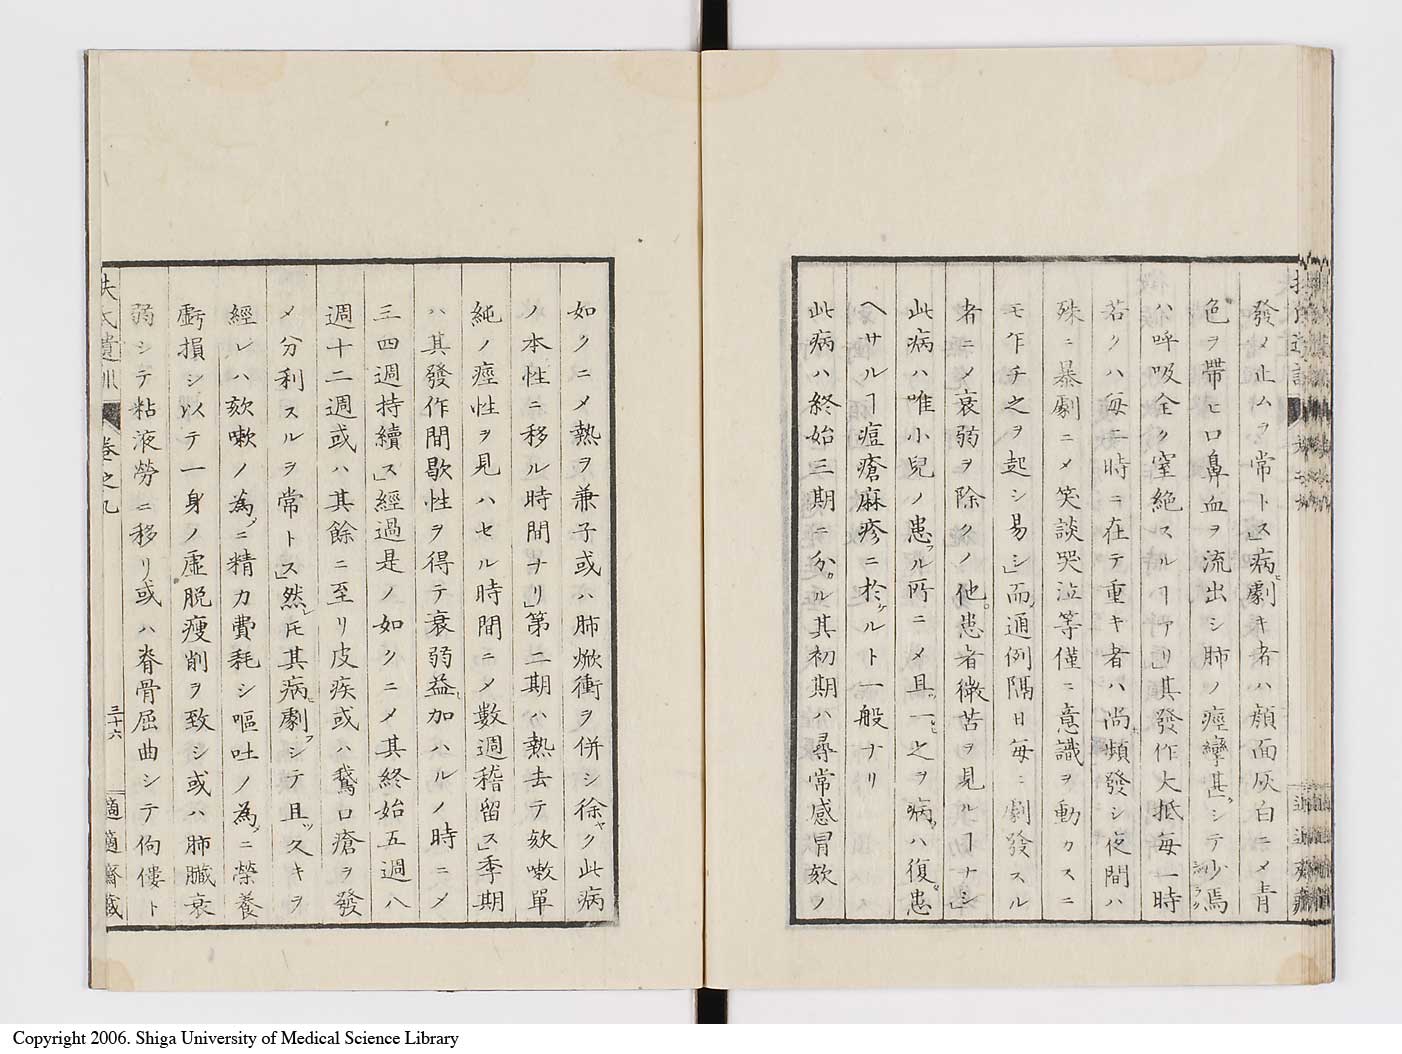 發メ止ムヲ常トス」病劇キ者ハ顔面灰白ニメ青
色ヲ帶ヒ口鼻血ヲ流出シ肺ノ痙攣甚シテ妙焉
ハ呼吸全ク窒絶スルヿアリ」其發作大抵毎一時
若クハ毎二時ニ在テ重キ者ハ尚頻發シ夜間ハ
殊ニ暴劇ニメ笑談哭泣等僅ニ意識ヲ動カスニ
モ作チ之ヲ起シ易シ」而通例隅日毎ニ劇發スル
者ニメ衰弱ヲ除クノ他患者微苦ヲ見ルヿナシ」
此病ハ唯小兒ノ患フル所ニメ且一之ヲ病ハ復患
ヘサルヿ痘瘡麻疹ニ於ケルト一般ナリ
此病ハ終始三期ニ分ル其初期ハ尋常感冒欬ノ
如クニメ熱ヲ兼子或ハ肺焮衝ヲ併シ徐ク此病
ノ本性ニ移ル時間ナリ」第二期ハ熱去テ欬嗽單
純ノ痙性ヲ見ハセル時間ニメ數週稽留ス」季期
ハ其發作間歇性ヲ得テ衰弱益加ハルノ時ニメ
三四週持續ス」經過是ノ如クニメ其終始五週八
週十二週或ハ其餘ニ至リ皮疾或ハ鵞口瘡ヲ發
メ分利スルヲ常トス」然𪜈其病劇シテ且久キヲ
經レハ欬嗽ノ為ニ精力費耗シ嘔吐ノ為ニ榮養
虧損シ以テ一身ノ虛脱瘦削ヲ致シ或ハ肺臓衰
弱シテ粘液勞ニ移リ或ハ脊骨屈曲シテ佝僂ト
扶氏遺訓 卷之九 三十六 適適齋藏
Copyright 2006. Shiga University of Medical Science Library